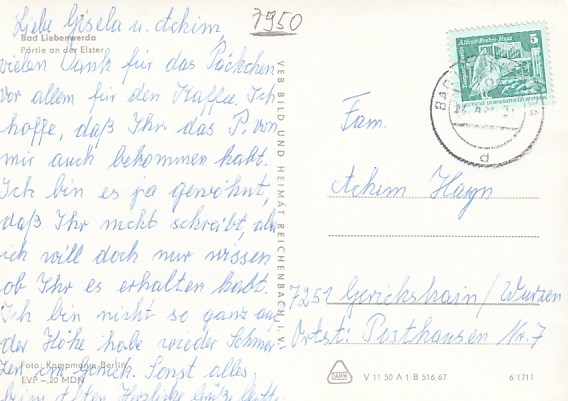 7950
Liebe Gisela u. Achim,
Bad Liebenwerda
Partie an der Elster
vielen Dank für das Päckchen
vor allem für den Kaffee. Ich
hoffe, daß Ihr das P. von
mir auch bekommen habt.
Ich bin es ja gewöhnt,
daß Ihr nicht schreibt, aber
ich will doch nur wissen
ob Ihr es erhalten habt.
Ich bin nicht so ganz auf
der Höhe habe wieder Schmer-
zen im Genick. Sonst alles
Foto: Kampmann, Berlin
EVP -,20 MDN
beim alten Herzliche Grüße
VEB BILD UND HEIMAT REICHENBACH I. V.
5
BAD
d
Fam.
Achim Hayn
7251 Gerichshain/Wurzen
Ortst: Posthausen Nr. 7
V 11 50 A 1 B 516.67
6 1711